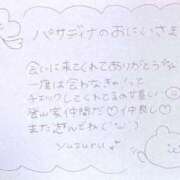 パサディナのおにいさま
会いに来てくれてありがとうな
一度は会わなきゃ!って
チェックしてくれてるの甘喜い
登山家仲間だ♡仲良し♡
また遊んでね(ˊᵕˋ)
yuzuru♪